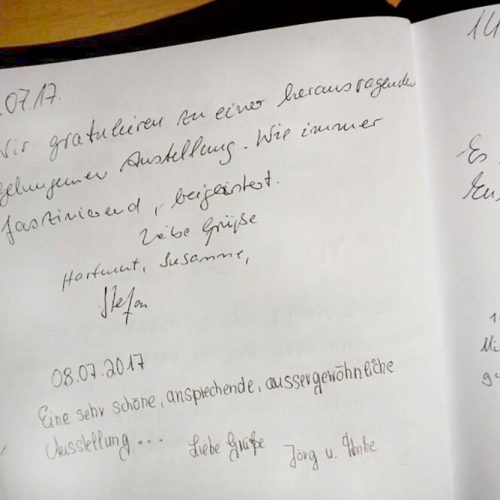 .07.17.
Wir gratulieren zu einer herausragenden
gelungenen Austellung. Wie immer
faszinierend, begeistert.
Liebe Grüße
Hartmut, Susanne,
Stefan
08.07.2017
Eine sehr schöne, ansprechende, aussergewöhnliche
Ausstellung...
Liebe Grüße Jörg u.
14
Es